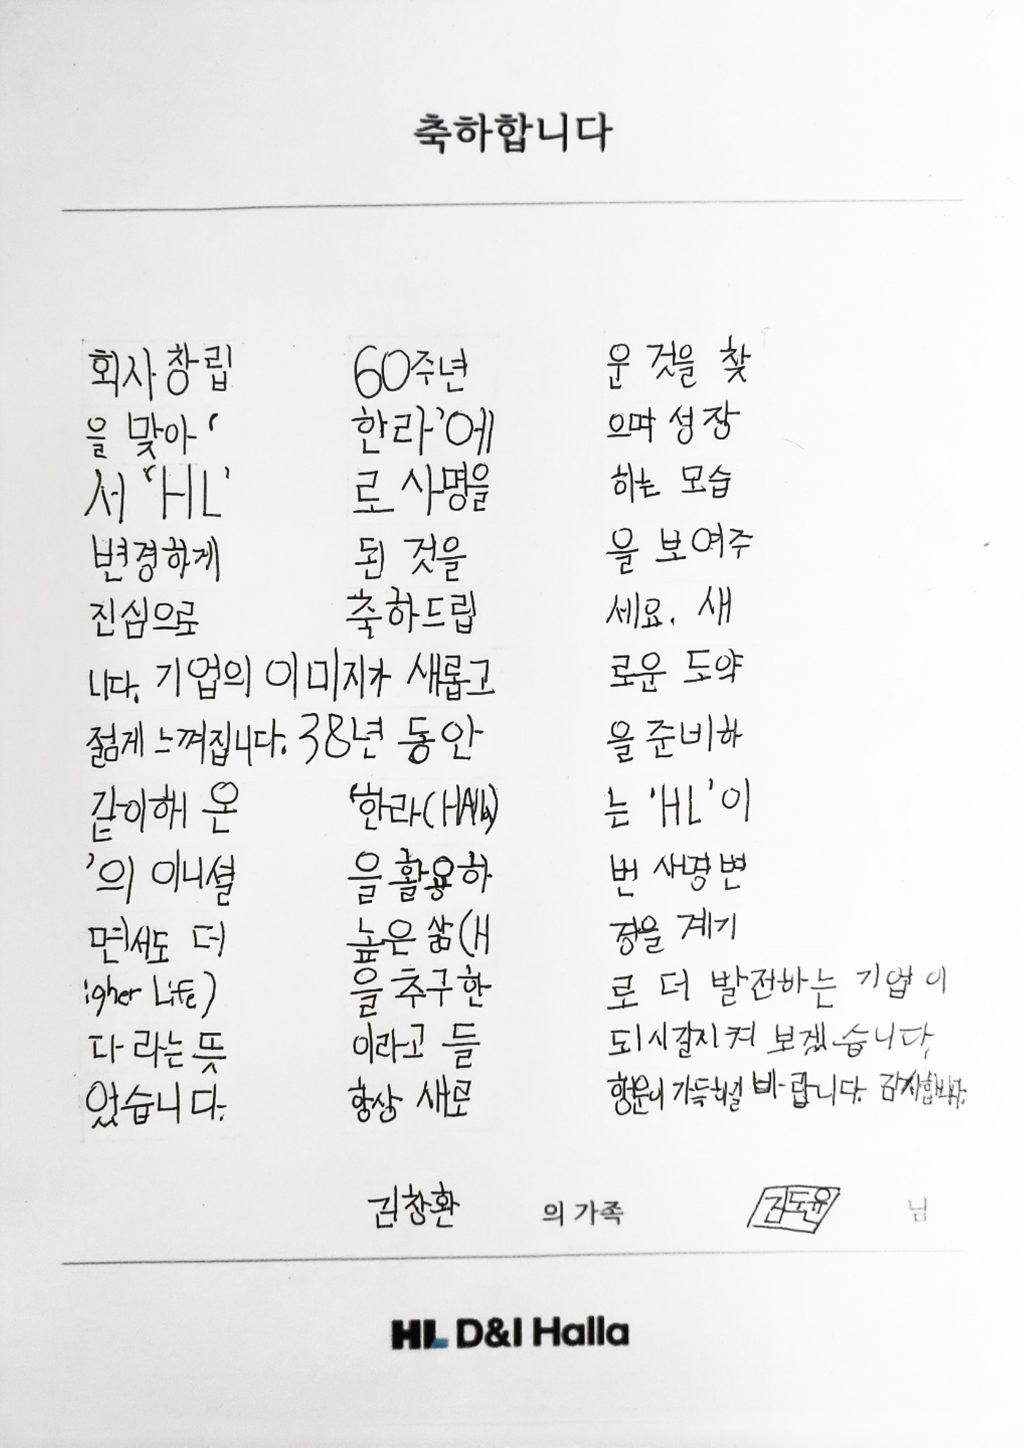 축하합니다
회사 창립 60주년
을 맞아 '한라'에
서 'HL'로 사명을
변경하게 된 것을
진심으로 축하드립
니다. 기업의 이미지가 새롭고
젊게 느껴집니다. 38년 동안
같이해 온 '한라(HALLA)
'의 이니셜을 활용하
면서도 더 높은 삶(H
igher Life)을 추구한
다 라는 뜻이라고 들
었습니다. 항상 새로
운 것을 찾
으며 성장
하는 모습
을 보여주
세요. 새
로운 도약
을 준비하
는 'HL'이
번 사명 변
경을 계기
로 더 발전하는 기업이
되시길 지켜 보겠습니다.
행운이 가득하길 바랍니다. 감사합니다.
김창환 의 가족 김도윤 님
HL D&I Halla